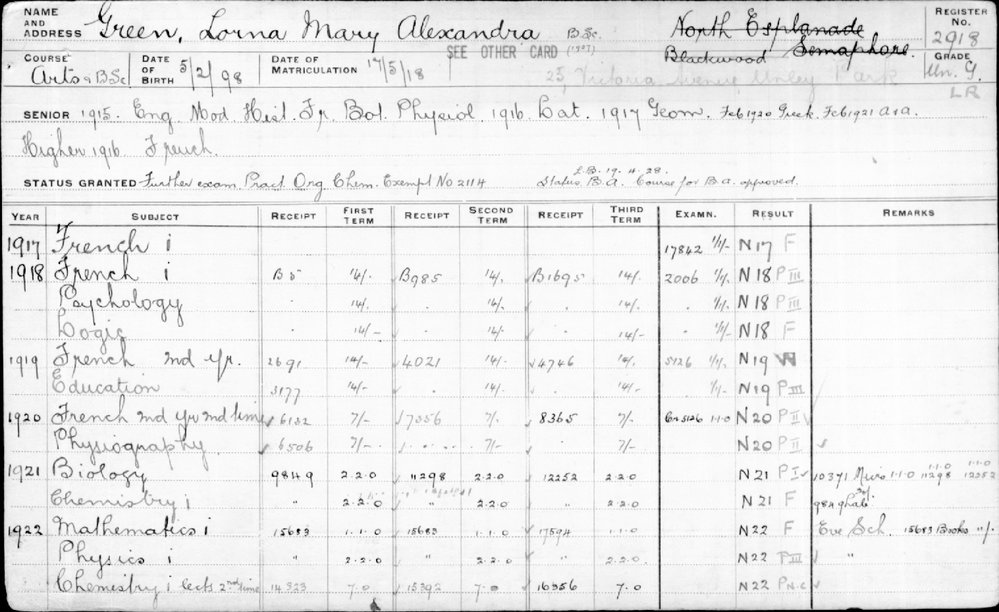 NAME AND ADDRESS Green, Lorna Mary Alexandra B.Sc. (1927) North Esplanade Semaphore. REGISTER No. 2918
SEE OTHER CARD Blackwood
25, Victoria Avenue Unley Park
COURSE Arts & B.Sc DATE OF BIRTH 5/2/98 DATE OF MATRICULATION 17/5/18 GRADE Un. G. LR
SENIOR 1915. Eng. Mod. Hist. Fr. Bot. Physiol. 1916. Lat. 1917 Geom. Feb 1920 Greek. Feb 1921 A & A.
Higher 1916. French.
STATUS GRANTED Further exam. Pract. Org. Chem. Exempt No 2114 Status B.A. Course for B.A. approved. 19.4.28.
YEAR SUBJECT RECEIPT FIRST TERM RECEIPT SECOND TERM RECEIPT THIRD TERM EXAMN. RESULT REMARKS
1917 French i 17842 1/1/- N17 F
1918 French i B5 14/- B985 14/- B1695 14/- 2006 1/1/- N18 P III
Psychology . 14/- . 14/- . 14/- . 1/1/- N18 P III
Logic . 14/- . 14/- . 14/- . 1/1/- N18 F
1919 French 2nd yr. 2691 14/- 4021 14/- 4746 14/- 5126 1/1/- N19
Education 3177 14/- 14/- 14/- 1/1/- N19 P III
1920 French 2nd yr 2nd time 6132 7/- 7356 7/- 8365 7/- 5126 1-1-0 N20 P II
Physiography 6506 7/- 7/- 7/- N20 P II
1921 Biology 9849 2.2.0 11298 2.2.0 12252 2.2.0 N21 P I 10371 Micro 1.1.0 1.1.0 11298 1.1.0 12252
Chemistry i " 2.2.0 " 2.2.0 " 2.2.0 N21 F 9849 Lab
1922 Mathematics i 15683 1.1.0 15683 1.1.0 17594 1.1.0 N22 F Eve Sch. 15683 Books
Physics i 2.2.0 " 2.2.0 " 2.2.0 N22 P III "
Chemistry i lects 2nd time 14323 7.0 15392 7.0 16356 7.0 N22 P.N.C